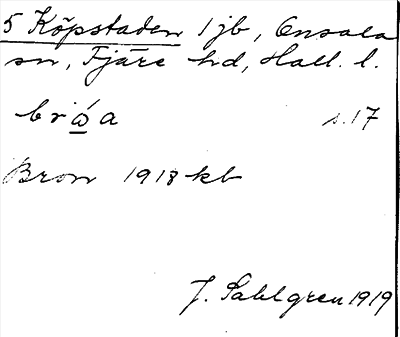 5 Köpstaden 1 jb, Onsala
sn, Fjäre hd, Hall. l.
bróa s.17
Bron 1918 kb
J. Sahlgren 1919